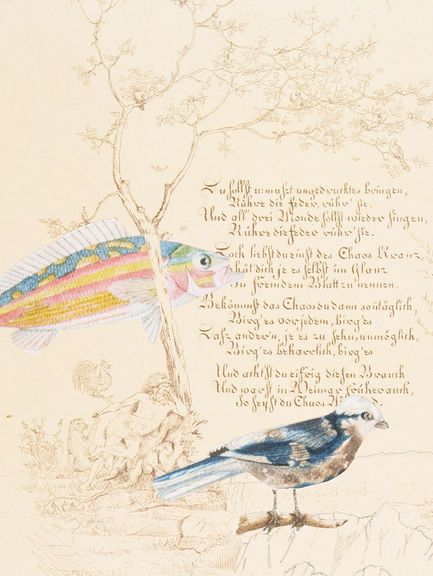 Du sollst u: mußt ungedrucktes bringen,
Rühre die Feder, rühr' sie.
Und all' drei Monde sollst wieder singen,
Rühre die Feder, rühr' sie.
Doch liebst du einst des Chaos Kranz,
hüt dich, je es selbst im Glanz
in fremdem Blatt zu nennen.
Bekommst das Chaos du dann sontäglich,
Birg' es vor jedem, birg' es
Laß andern, je es zu sehn, unmöglich,
Birg' es beharrlich, birg' es
Und achtst du eifrig diesen Brauch
Und warst in Weimar früher auch,
So heißt du Chaos